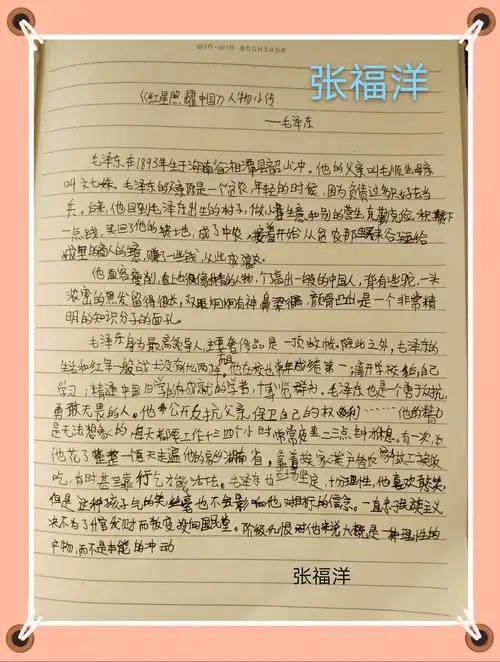 WIN-WIN BOOKSHOP
张福洋
《红星照耀中国》人物小传
——毛泽东
毛泽东在1893年生于湖南省湘潭县韶山冲。他的父亲叫毛顺生母亲
叫文七妹。毛泽东的父亲原是一个贫农,年轻的时候,因为负债过多只好去当
兵。后来,他回到毛泽东出生的村子,做小生意和别的营生,克勤克俭,积攒下
一点钱,买回了他的地,成了中农,接着开始从贫农那里买谷子运给
城里的商人的生意,赚了一些钱,从此成富农。
他面容瘦削,看上去很像林肯的人物,个子高出一般的中国人,背有些驼,一头
浓密的黑发留得很长,双眼炯炯有神,鼻梁很高,颧骨凸出是一个非常精
明的知识分子的面孔。
毛泽东身为最高领导人,主要奢侈品是一顶蚊帐。除此之外,毛泽东的
生活和红军一般战士没有什么两样。他在校也常年成绩第一,离开学校能自己
学习;精通中国旧学的有成就的学者,博览群书。毛泽东也是个勇于反抗,
勇敢无畏的人。他多次公开反抗父亲,保卫自己的权利……他的精力
是无法想象的,每天都要工作十三四个小时,常常夜里二三点钟才休息。有一次,
他花了整整一夏天走遍他的家乡湖南省,靠着挨家挨户替农家做工换饭
吃,有时甚至靠行乞才能生活。毛泽东
但是这种孩子气的笑,丝毫也不会影响他对目标的信念。一直忠于民族主义
决不为了升官发财而叛变投向国民党。阶级仇恨对他来说大概是一种理性的
产物,而不是本能的冲动
张福洋